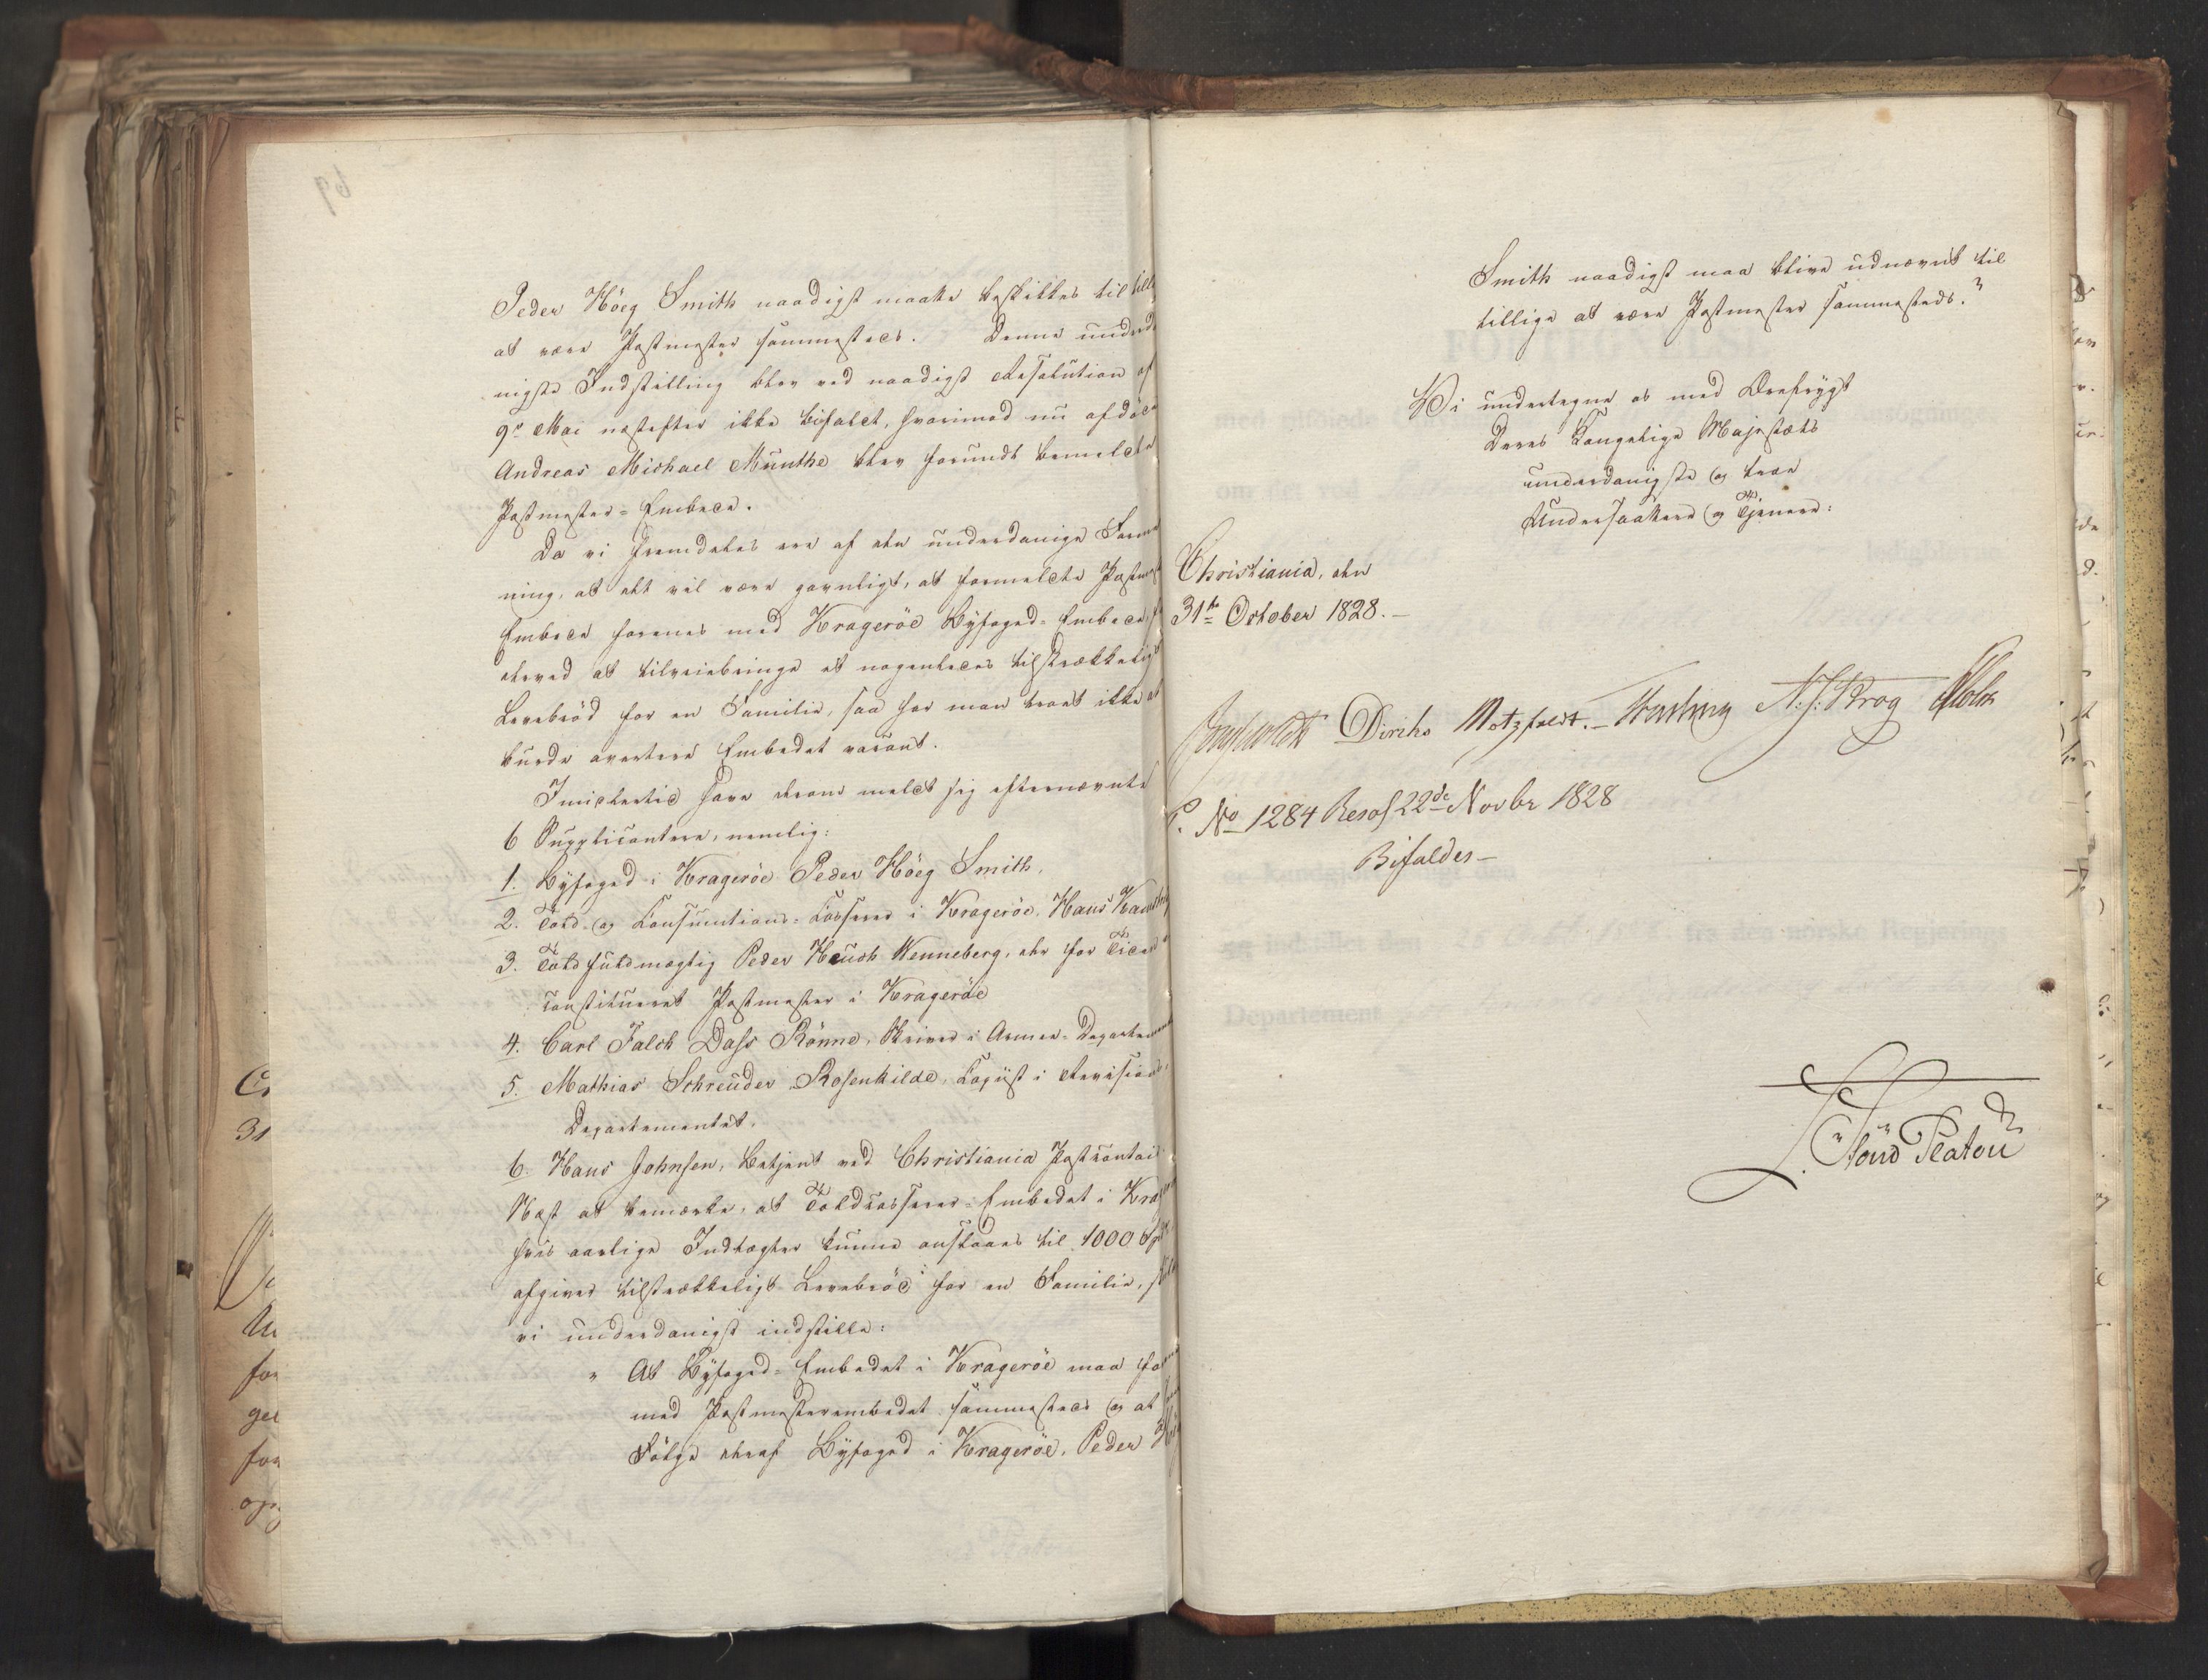 Peder Höeg Smith naadigst maatte beskikkes til till
at være Postmester sammesteds. Denne underd
nigste Indstilling blev ved naadigst Resolution af
9de Mai næstefter ikke bifaldt, hvorimod nu afdöde
Andreas Michael Munthe blev forundt bemeldte
Postmester-Embede.
Da vi fremdeles ere af den underdanige Forme
ning, at det vil være gavnligt, at formeldte Postmest
Embede forenes med Krageröe Byfoged-Embede, f
derved at tilveiebringe et nogenledes tilstrækkeligt
Levebröd for en Familie, saa har man troet ikke at
burde avertere Embedet vacant.
Imidlertid have derom meldt sig efternævnte
6 Supplicantere, nemlig:
1. Byfoged i Krageröe Peder Höeg Smith,
2. Told- og Consumtions-Casserer i Krageröe, Hans
3. Toldfuldmægtig Peder Heuch Wenneberg, der for Tiden
constitueret Postmester i Krageröe
4. Carl Falck Dass Rönne, Skriver i Armee-Departement
5. Mathias Schreuder Rosenkilde, Copiist i Revisions-
Departementet.
6. Hans Johnsen, Betjent ved Christiania Postcontoir
Næst at bemærke, at Toldcasserer-Embedet i Kra
hvis aarlige Indtægter kunne anslaaes til 1000 Spd
afgiver tilstrækkeligt Levebröd for en Familie,
vi underdanigst indstille:
" At Byfoged-Embedet i Krageröe maa fo
med Postmesterembedet sammesteds og at
Fölge deraf Byfoged i Krageröe, Peder Höeg
Smith naadigst maa blive udnævnt til
tillige at være Postmester sammesteds."
Vi undertegne os med Ærefrygt
Deres Kongelige Majestæts
underdanigste og troe
Undersaattere og Tjenere:
Christiania, den
31te October 1828. –
Diriks Motzfeldt. – N. J. Krog
P. No 1284 Resol 22de Novbr 1828
Bifaldes –
Stoud Platou
69